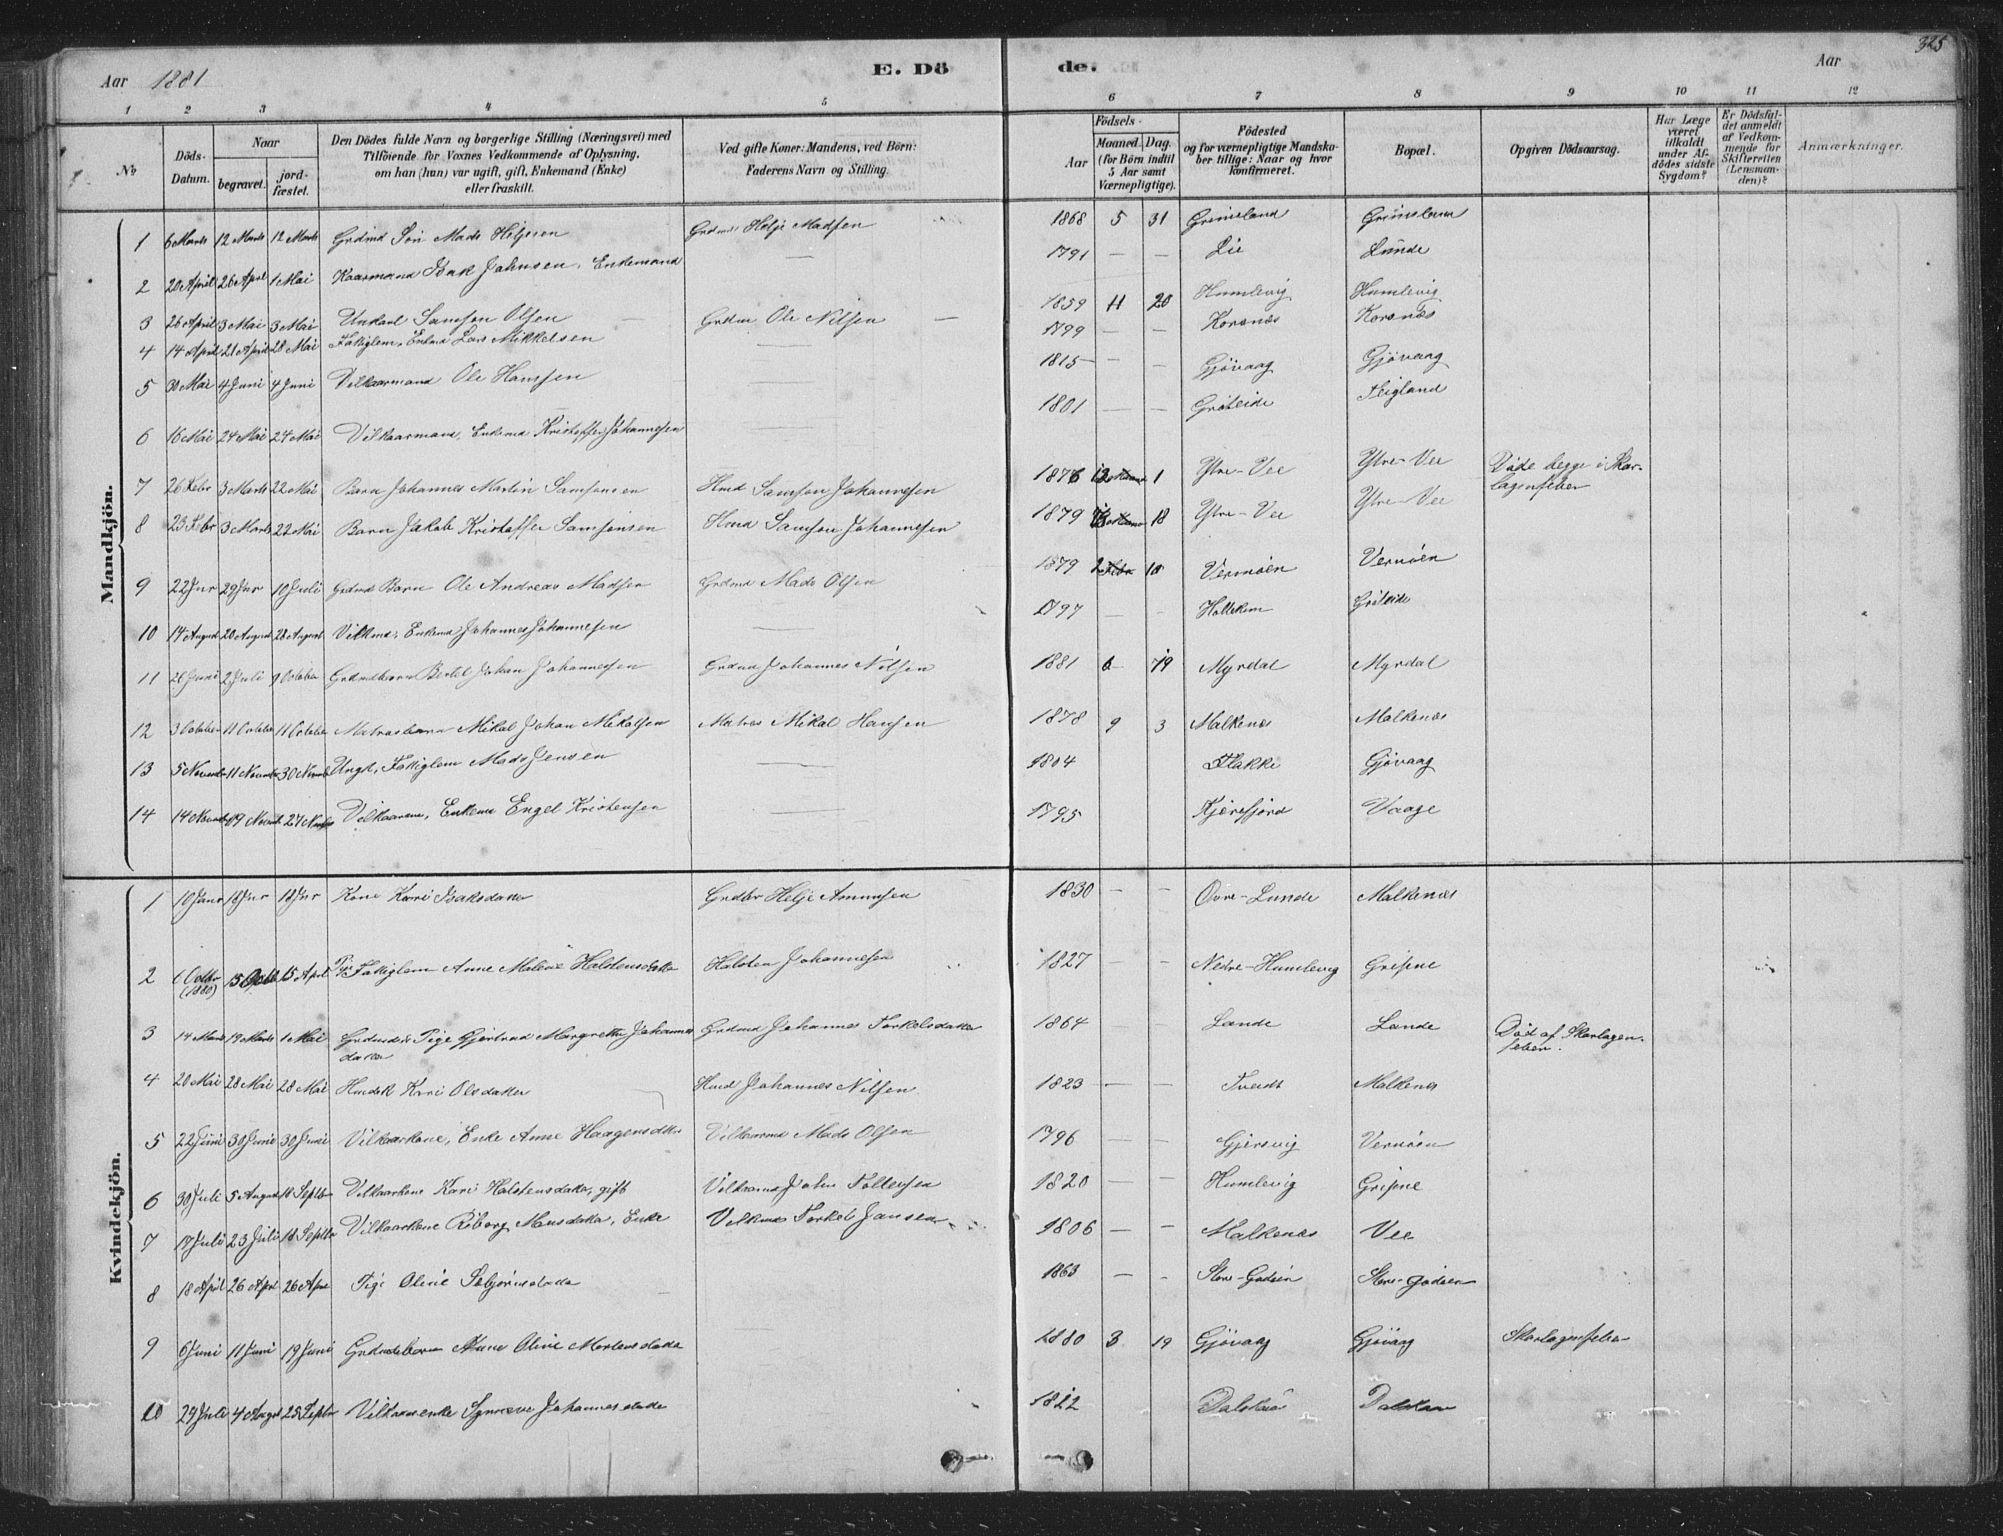 325
Aar 1881
E. Dö de.
Aar
1 2 3 4 5 6 7 8 9 10 11 12
No
Döds-Datum.
Naar
begravet.
jord-fæstet.
Den Dödes fulde Navn og borgerlige Stilling (Næringsvei) med
Tilföiende for Voxnes Vedkommende af Oplysning,
om han (hun) var ugift, gift, Enkemand (Enke)
eller fraskilt.
Ved gifte Koner: Mandens, ved Börn:
Faderens Navn og Stilling.
Födsels-
Aar
Maaned. Dag.
(for Börn indtil
5 Aar samt
Værnepligtige).
Födested
og for værnepligtige Mandska-
ber tillige: Naar og hvor
konfirmeret.
Bopæl.
Opgiven Dödsaarsag.
Har Læge
været
tilkaldt
under Af-
dödes sidste
Sygdom?
Er Dödsfal-
det anmeldt
af Vedkom-
mende for
Skifteretten
(Lensman-
den)?
Anmærkninger.
Mandkjön.
1 6 Marts 12 Marts 12 Marts Grdmd Sön Mads Heljesen Grdmd Helje Madsen 1868 5 31 Grimsland
2 20 April 26 April 1 Mai Kaarmand Isak Johnsen, Enkemand — 1791 — — Lie Lunde
3 26 April 3 Mai 3 Mai Unkarl Samson Olsen — Grdm Ole Nilsen — 1859 11 20 Humlevig Humlevig
4 14 April 21 April 28 Mai Fattiglem, Enkmd Lars Mikkelsen — 1799 — — Korsnæs Korsnæs
5 30 Mai 4 Juni 4 Juni Vilkaarmand Ole Hansen — 1815 — — Gjövaag Gjövaag
6 16 Mai 24 Mai 24 Mai Vilkaarmand, Enkemd Kristoffer Johannesen — 1801 — — Gröteide Fleigland
7 26 Febr 3 Marts 22 Mai Barn Johannes Martin Samsonsen Hmd Samson Johannesen 1876 12 1 Ytre-Vee Ytre-Vee Döde begge i Skar-
lagensfeber
8 23 Febr 3 Marts 22 Mai Barn Jakob Kristoffer Samsonsen Hmd Samson Johannesen 1879 18 Ytre-Vee Ytre-Vee
9 22 Jnr 29 Jnr 10 Juli Grdmd Barn Ole Andreas Madsen Grdmd Mads Olsen 1879 2 18 Vernöen Vernöen
10 14 August 20 August 28 August Vilkmd, Enkemd Johannes Johannesen — 1797 — — Gröteide
11 26 Juni 2 Juli 9 October Grdmdbarn Bertel Johan Johannessen Grdmd Johannes Nilsen 1881 6 19 Myrdal Myrdal
12 3 October 11 October 11 October Matrosbarn Mikal Johan Mikalsen Matros Mikal Hansen 1878 9 3 Malkenæs Malkenæs
13 5 Novembr 11 Novembr 30 Novemb Ungk, Fattiglem Mads Jensen — 1804 Flakke Gjövaag
14 14 Novembr 19 Novemb 27 Novembr Vilkaarm, Enkem Engel Kristensen — 1795 Kjersfjord Vaage
Kvindekjön.
1 10 Janr 18 Jnr 18 Jnr Kone Kari Isaksdatter Grdbr Helje Amunsen 1830 — — Övre-Lunde Malkenæs
2 6 Octbr
(1880) 13 15 April Fattiglem Anne Malene Halstensdatter Halsten Johannesen 1827 — — Nedre-Humlevig Gripne
3 14 Marts 19 Marts 1 Mai Pige Gjertrud Margrethe Johannes
datter Grdmd Johannes Torkelsdatter 1864 — — Lande Lande Död af Skarlagen-
feber.
4 20 Mai 28 Mai 28 Mai Kari Olsdatter Hmd Johannes Nilsen 1823 — — Tvedt Malkenes
5 22 Juni 30 Juni 30 Juni Vilkaarkone, Enke Anne Haagensdatter Vilkaarmd Mads Olsen 1796 Gjersvig Vernöen
6 30 Juli 5 August 18 Septbr Vilkaarkone Kari Halstensdatter, gift Vilkaarmd John Tollevsen 1820 — — Humlevig Gripne
7 17 Juli 23 Juli 18 Septbr Vilkaarkone Riborg Monsdatter, Enke Vilkmd Torkel Jansen 1806 — — Malkenæs Vee
8 18 April 26 Apri 26 Apri Pige Oline Sebjörnsdatter 1863 — — Store-Godöen Store-Godöen
9 6 Juni 11 Juni 19 Juni Grdmdsbarn Anne Oline Mortensdatter 1880 3 19 Gjövaag Gjövaag Skarlagensfeber
10 29 Juli 4 August 25 Septbr Vilkaarsenke Synneve Johannesdatter 1822 Dalskar Dalskar